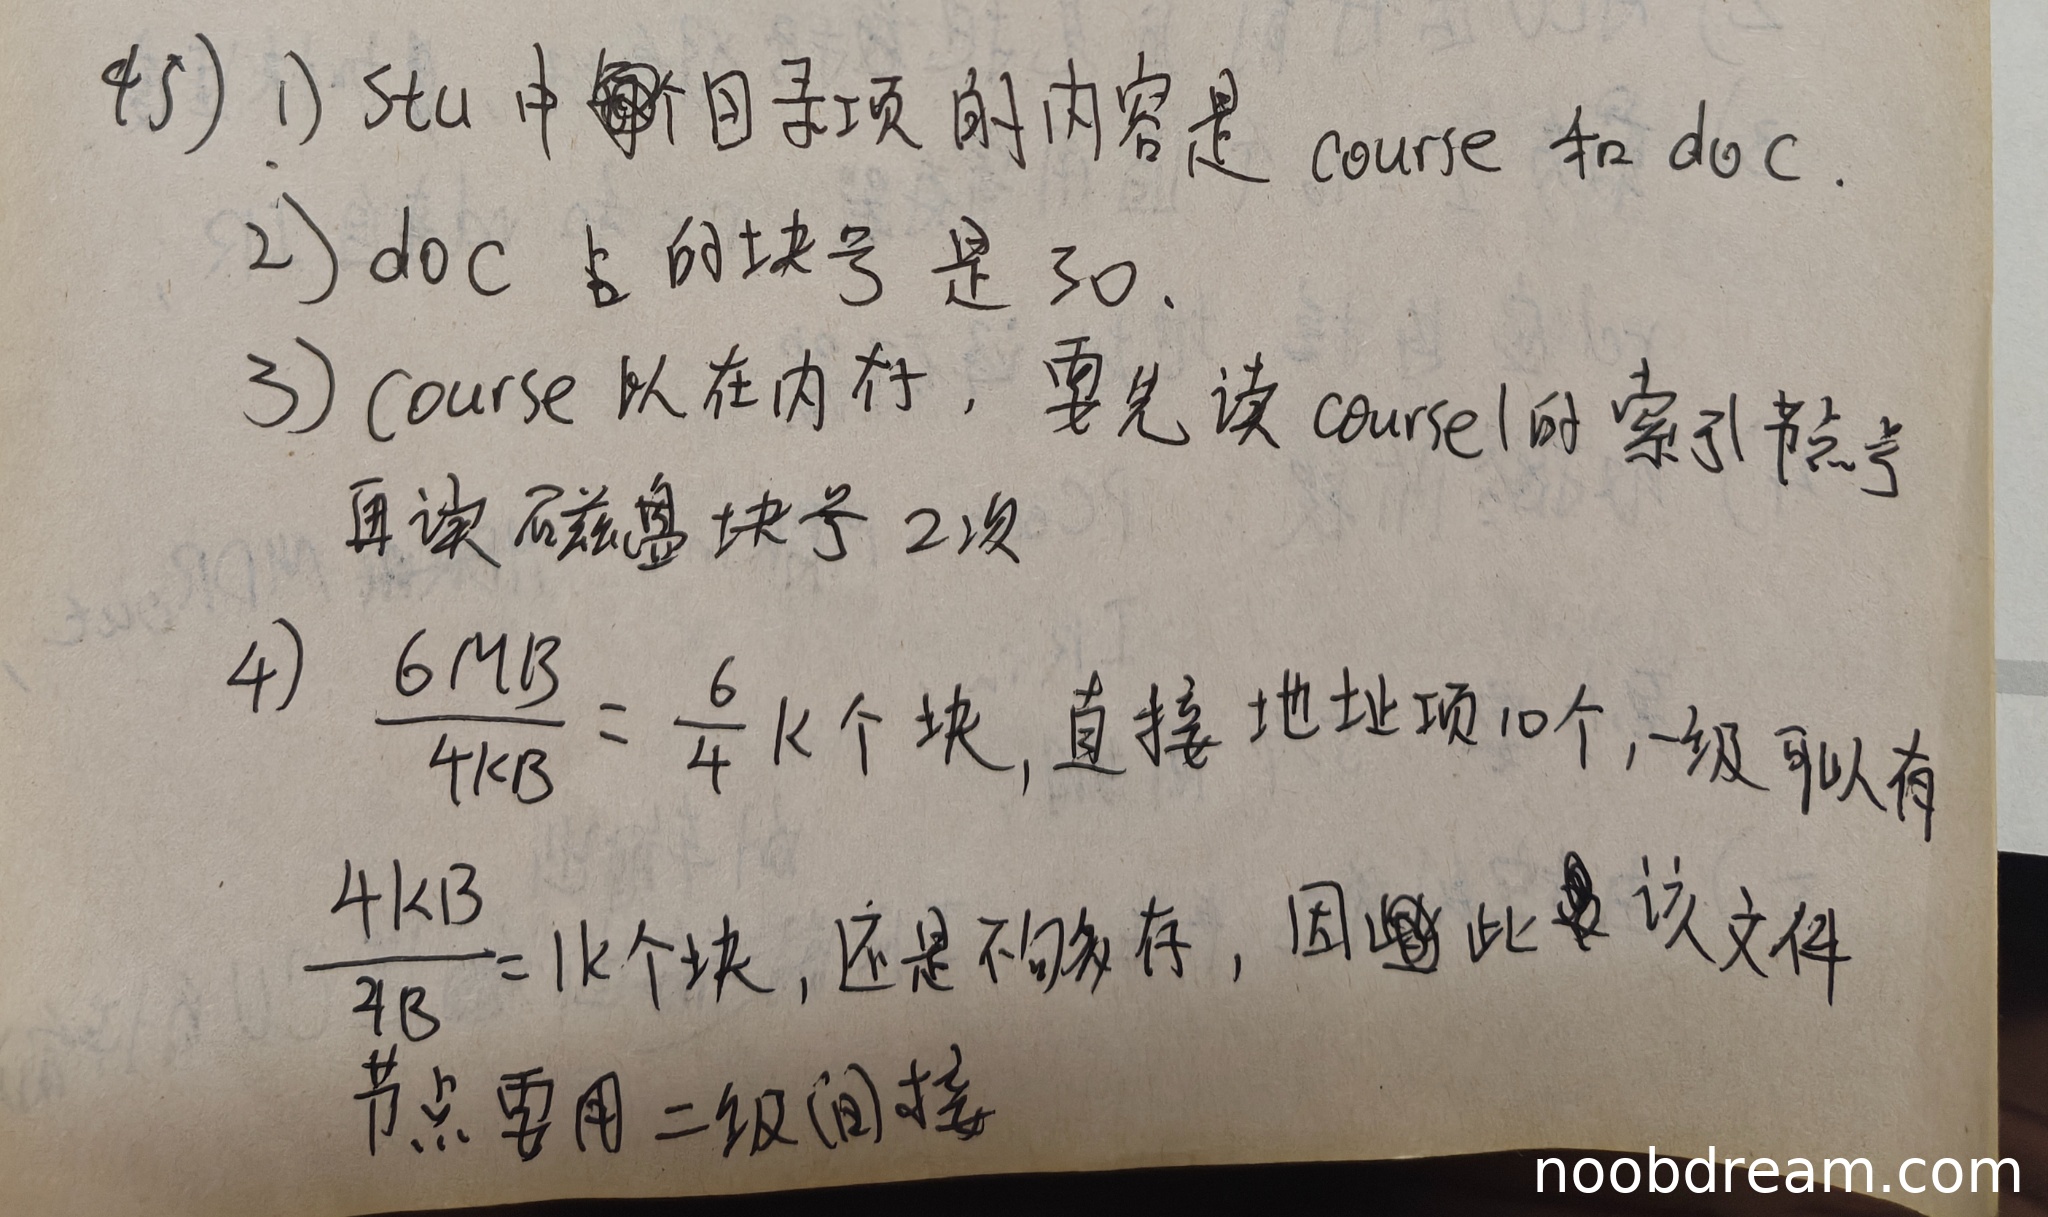 45) 1) stu 中个目录项的内容是 course 和 doc.
2) doc 占的块号是 30.
3) course 以在内存, 要先读 course1的索引节点号
再读磁盘块号 2次
4) 6MB/4KB = 6/4 K个块, 直接地址项10个, 一级可以有
4KB/4B = 1K个块, 还是不够多存, 因此该文件
节点要用二级间接
noobdream.com